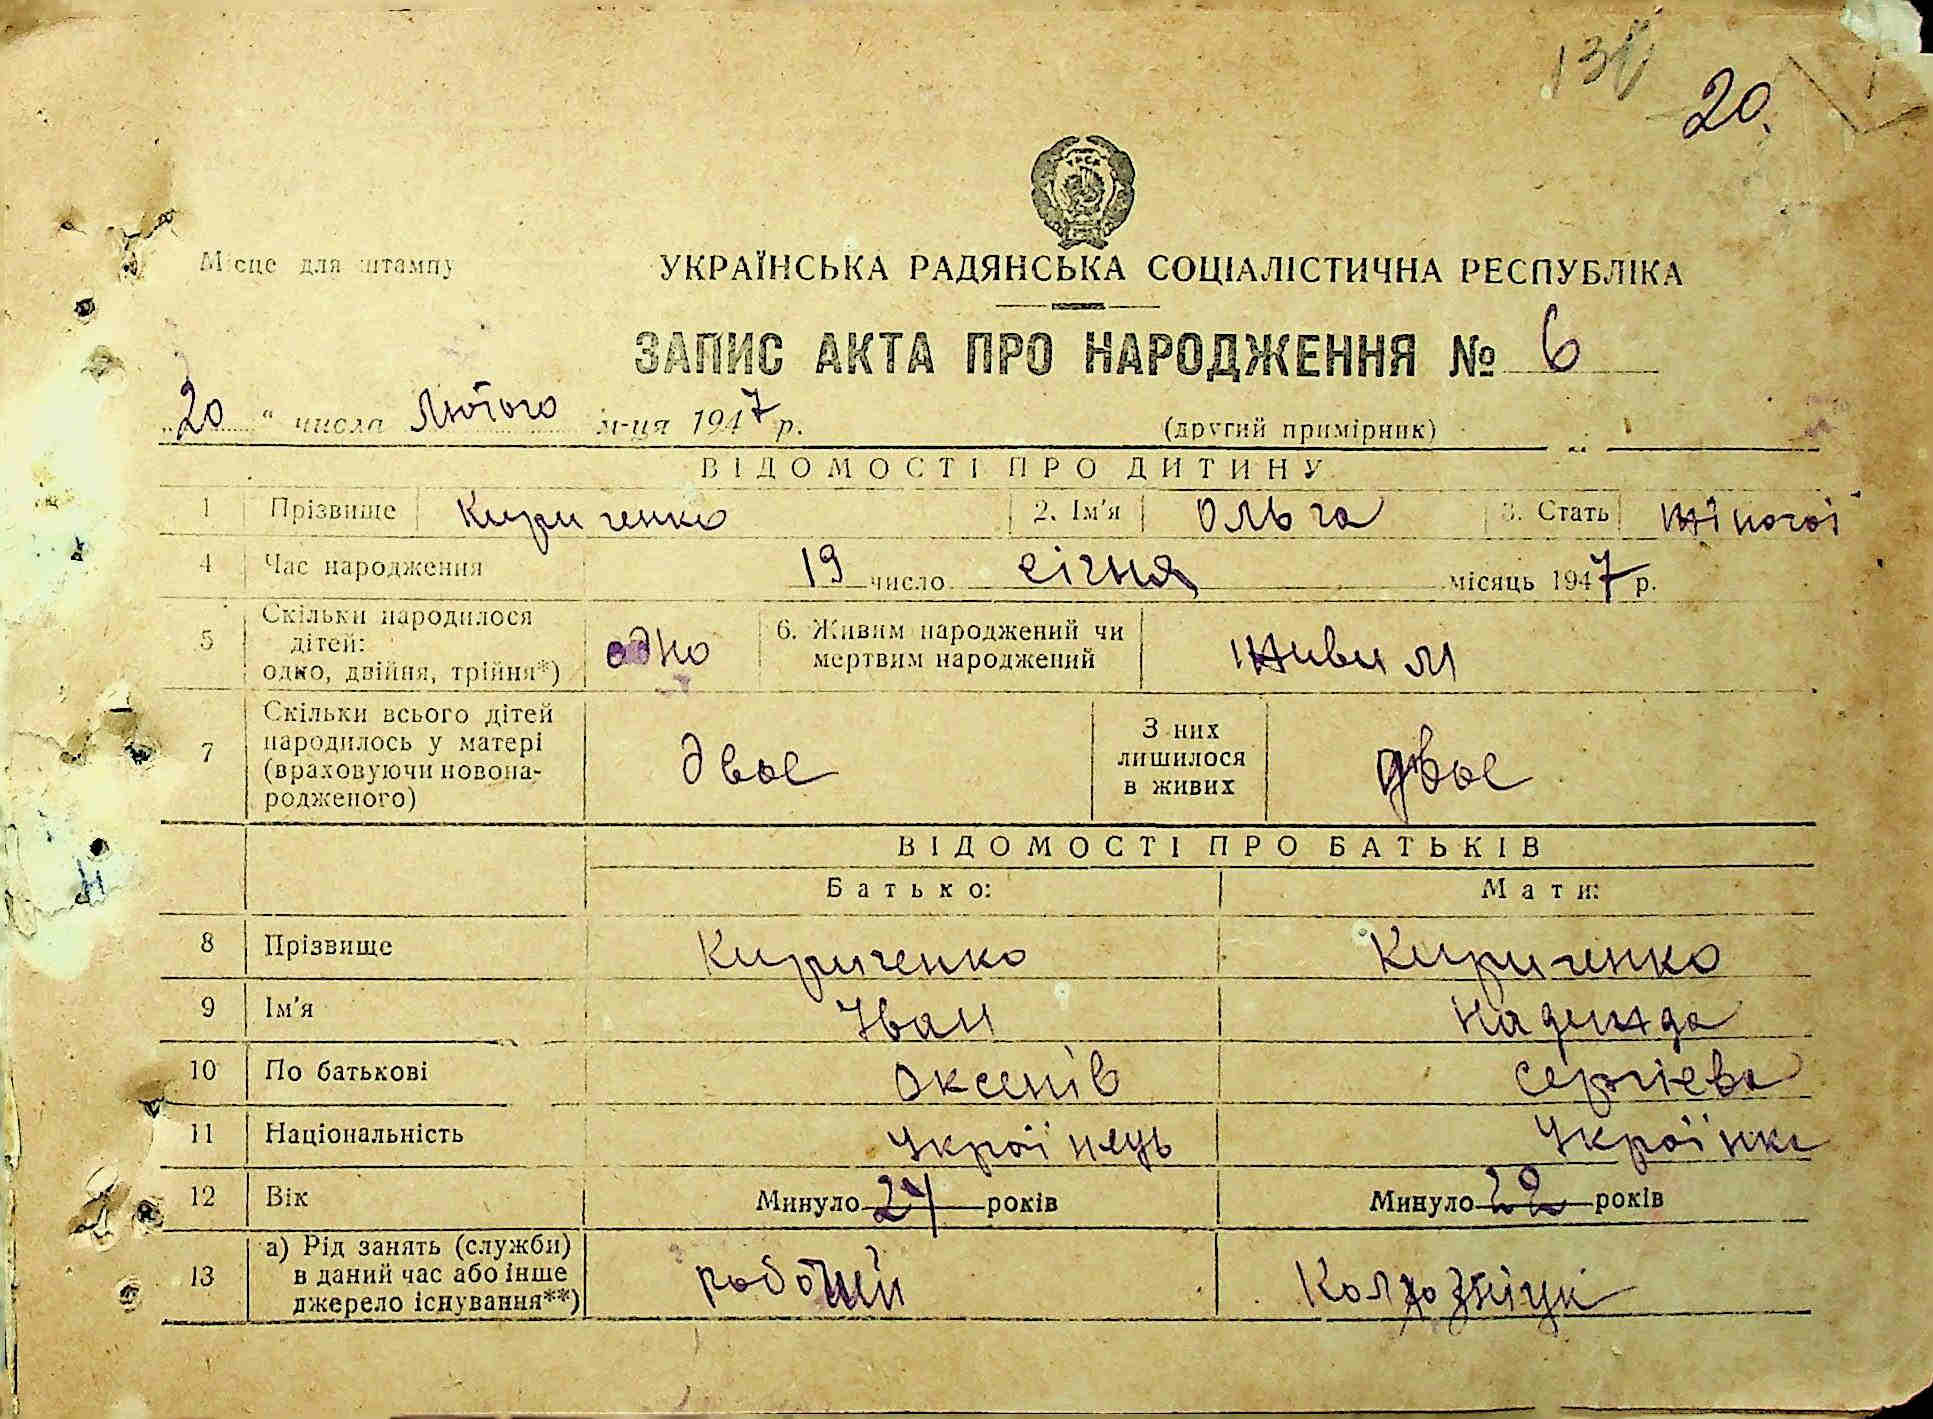 20.
Місце для штампу
УКРАЇНСЬКА РАДЯНСЬКА СОЦІАЛІСТИЧНА РЕСПУБЛІКА
ЗАПИС АКТА ПРО НАРОДЖЕННЯ № 6
„20“ числа Лютого м-ця 1947 р. (другий примірник)
ВІДОМОСТІ ПРО ДИТИНУ
1 Прізвище Кириченко 2. Ім'я Ольга 3. Стать жіночої
4 Час народження 19 число січня місяць 1947 р.
5 Скільки народилося дітей: одно, двійня, трійня*) одно 6. Живим народжений чи мертвим народжений живим
7 Скільки всього дітей народилось у матері (враховуючи новонародженого) двоє З них лишилося в живих двоє
ВІДОМОСТІ ПРО БАТЬКІВ
Батько: Мати:
8 Прізвище Кириченко Кириченко
9 Ім'я Іван Надежда
10 По батькові Оксенів Сергієва
11 Національність Українець Українка
12 Вік Минуло 24 років Минуло 22 років
13 а) Рід занять (служби) в даний час або інше джерело існування**)